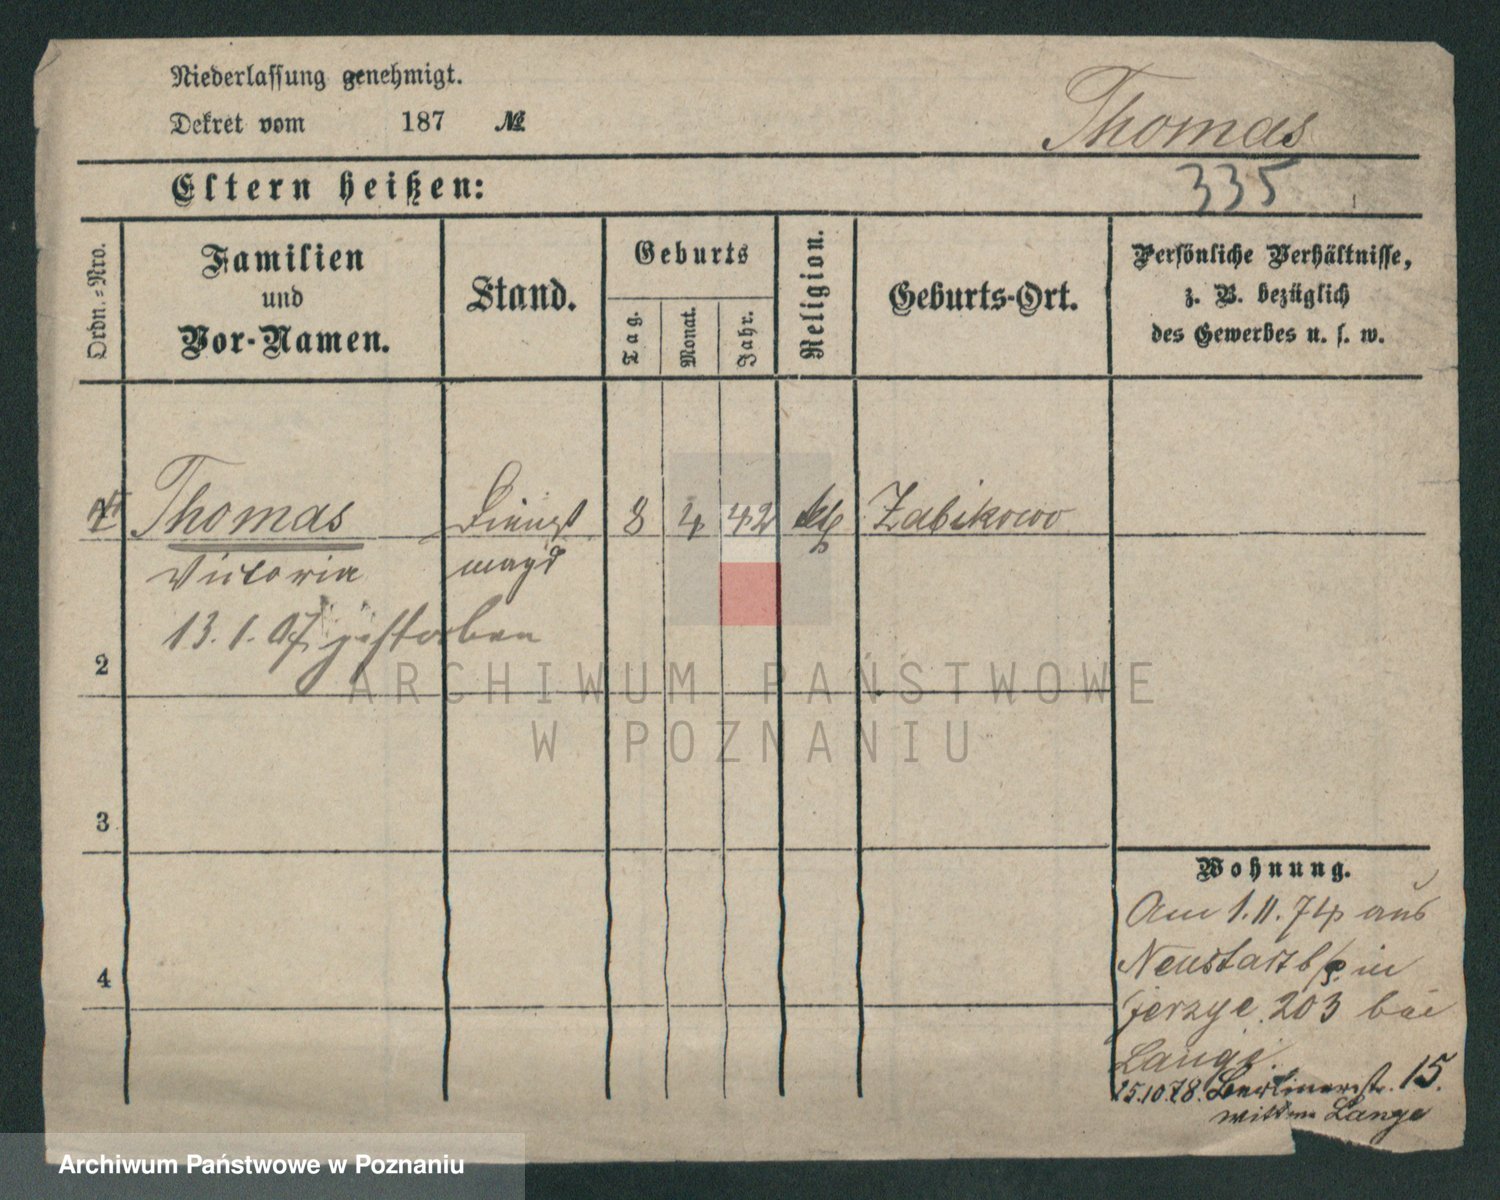 Niederlassung genehmigt.
Dekret vom 187 №
Thomas
Eltern heißen:
335
Ordn.-Nro.
Familien
und
Vor-Namen.
Stand.
Geburts
Tag.
Monat.
Jahr.
Religion.
Geburts-Ort.
Persönliche Verhältnisse,
z. B. bezüglich
des Gewerbes u. s. w.
Thomas Dienst 8 4 42 kth Zabikowo
Victoria magd
13.1.07 gestorben
2
3
4
Wohnung.
Am 1.11.74 aus
Neustadt b/P. in
Jerzyce 203 bei
Lange.
15.10.78. Berlinerstr. 15.
Lange
ARCHIWUM PAŃSTWOWE
W POZNANIU
Archiwum Państwowe w Poznaniu